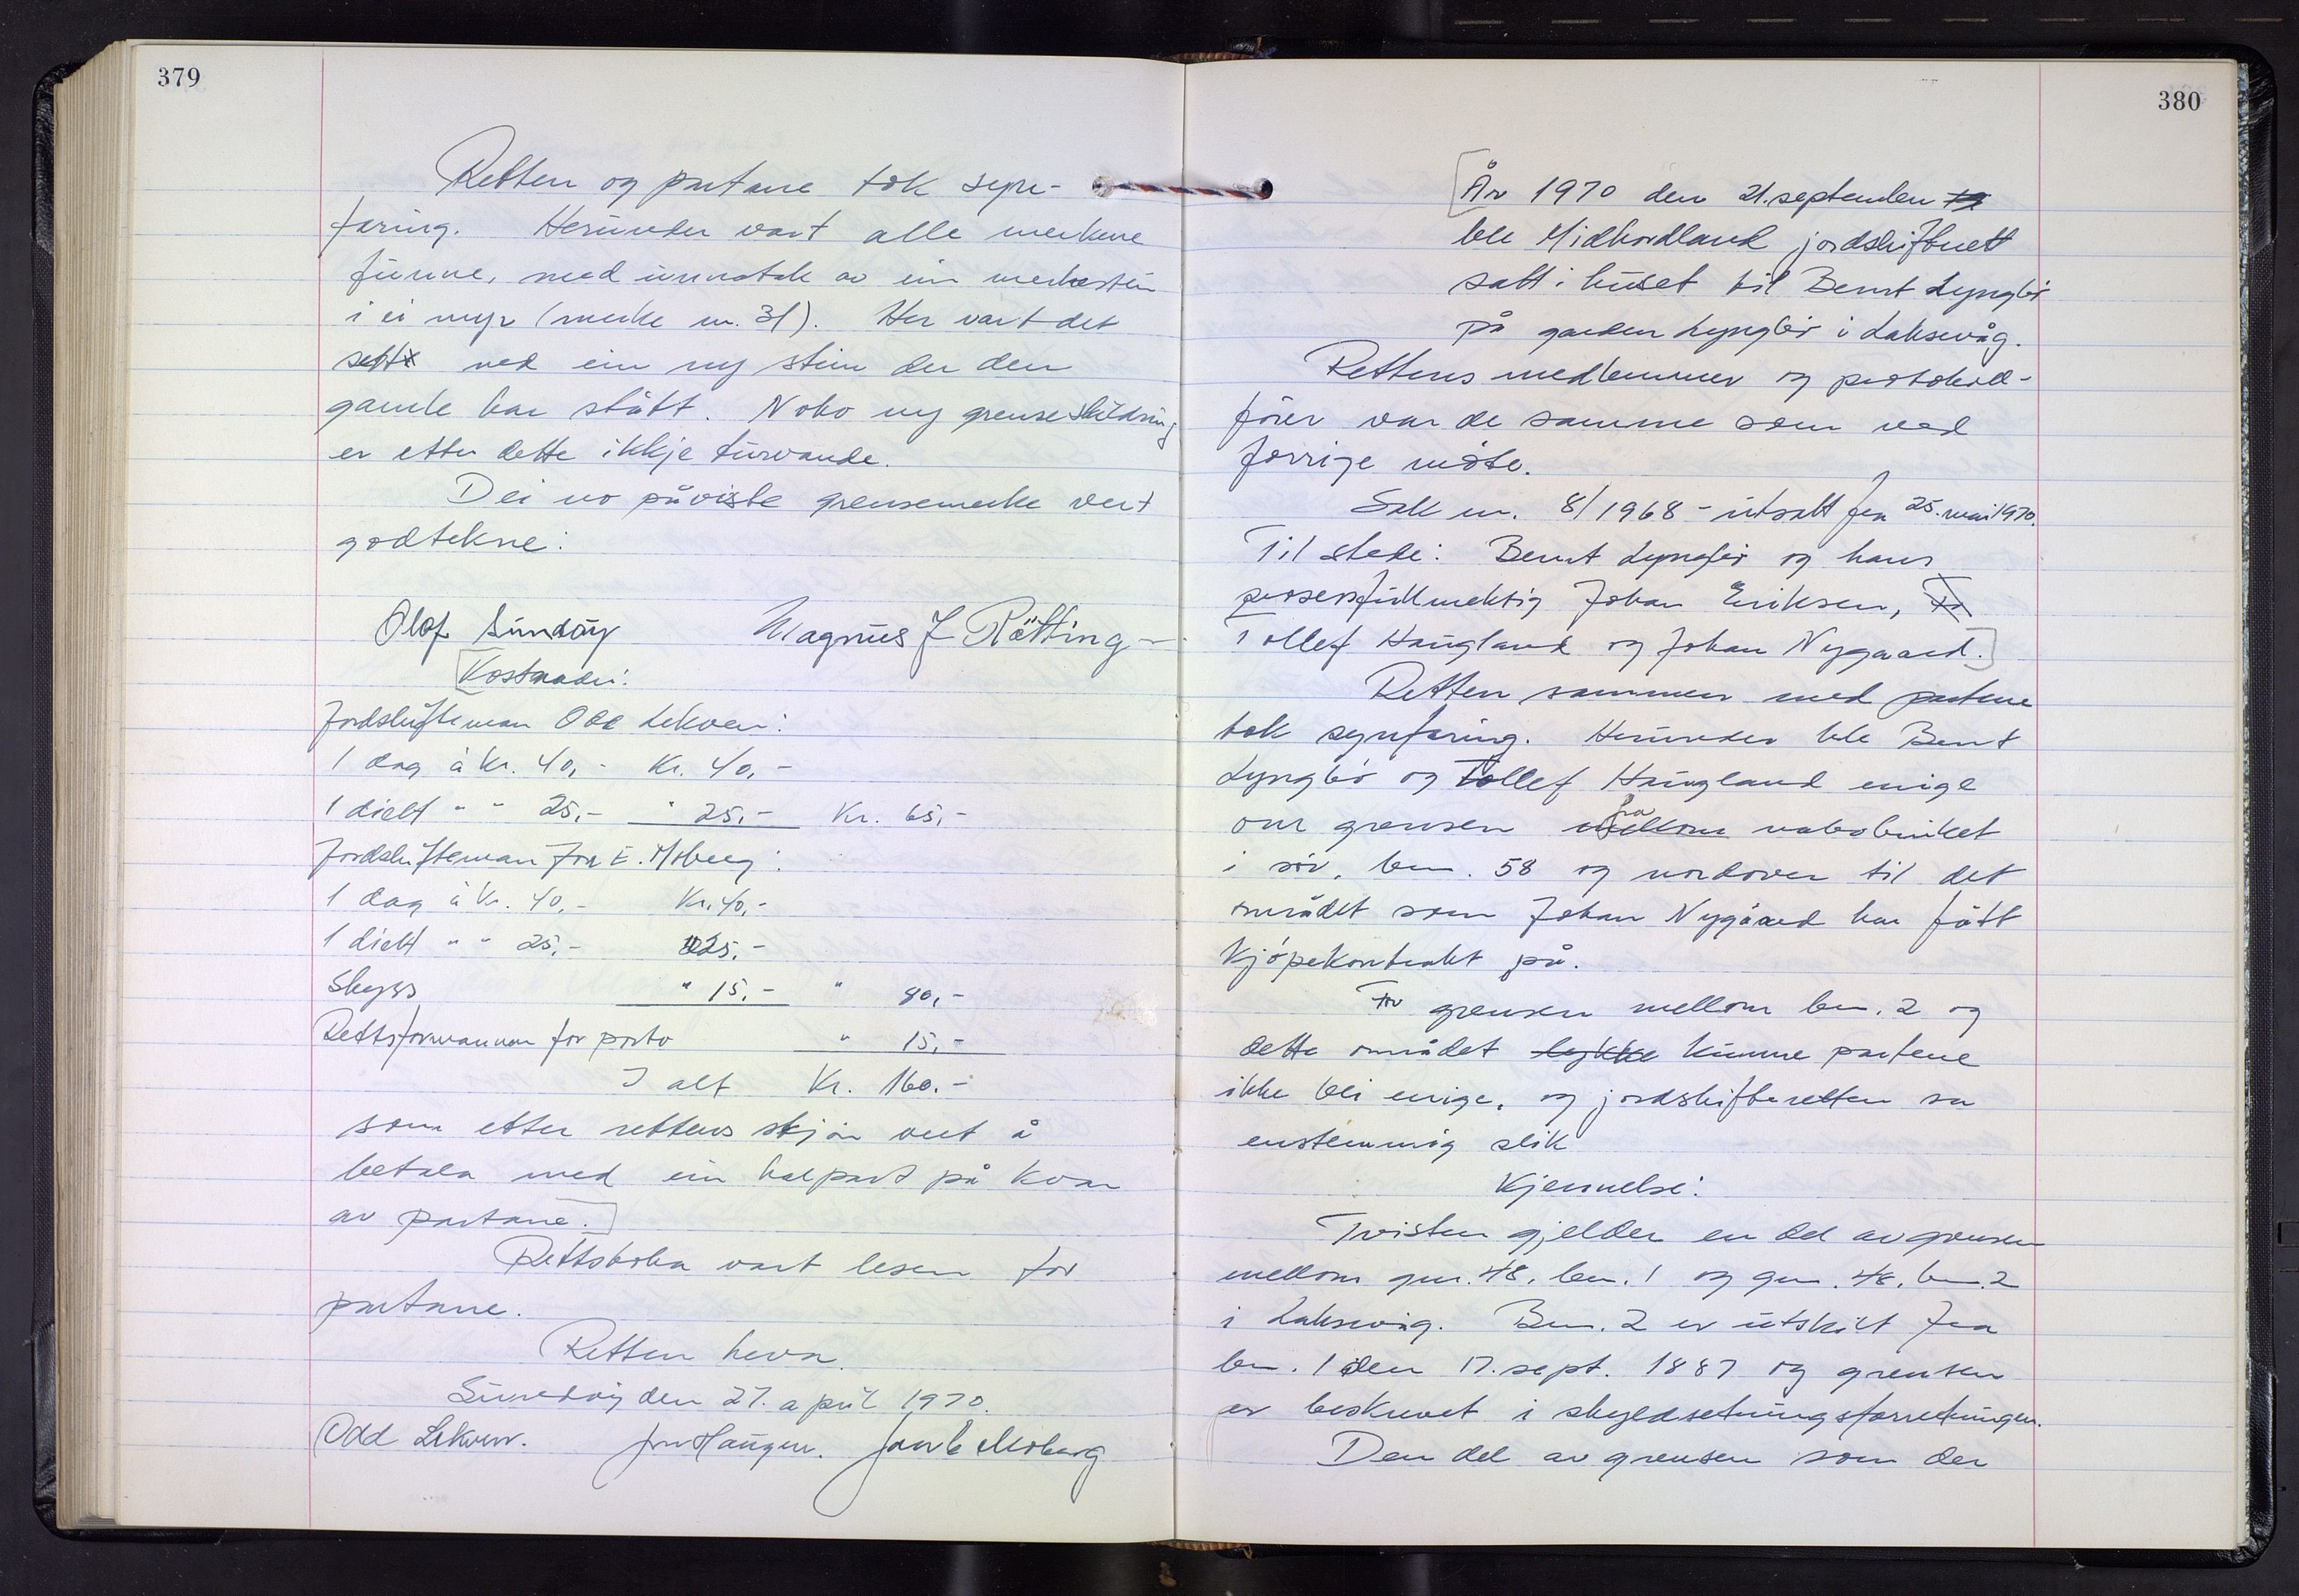 379
Retten og partane tok syn-
faring. Herunder vart alle merkene
funne, med unnatak av ein merkestein
i ei myr (merke nr. 31). Her vart det
sett ned ein ny stein der den
gamle har stått. Noko ny grenseskildring
er etter dette ikkje turvande.
Dei no påviste grensemerke vert
godtekne:
Olof Sundöy Magnus J Rötting
[Kostnader:
Jordskiftemann Odd Lekven:
1 dag à kr. 40,- Kr. 40,-
1 diett " " 25,- " 25,- Kr. 65,-
Jordskiftemann Jon E. Moberg:
1 dag à kr. 40,- Kr. 40,-
1 diett " " 25,- " 25,-
Skyss " 15,- " 80,-
Rettsformannen for porto " 15,-
I alt Kr. 160.-
som etter rettens skjön vert å
betala med ein halpart på kvar
av partane.]
Rettsboka vart lesen for
partane.
Retten heva.
Sundöy den 27. april 1970.
Odd Lekven. Jon Haugen. Jon E Moberg
380
[År 1970 den 21. september
ble Midhordland jordskifterett
satt i huset til Bernt Lyngbö
på garden Lyngbö i Laksevåg.
Rettens medlemmer og protokoll-
förer var de samme som ved
forrige möte.
Sak nr. 8/1968 - utsatt fra 25. mai 1970.
Til stede: Bernt Lyngbö og hans
prosessfullmektig Johan Eriksen,
Tollef Haugland og Johan Nygaard.]
Retten sammen med partene
tok synfaring. Herunder ble Bernt
Lyngbö og Tollef Haugland enige
om grensen mellom fra nabobruket
i sör, bnr. 58 og nordover til det
området som Johan Nygaard har fått
kjöpekontrakt på.
For grensen mellom bnr. 2 og
dette området lykke kunne partene
ikke bli enige, og jordskifteretten sa
enstemmig slik
Kjennelse:
Tvisten gjelder en del av grensen
mellom gnr. 48, bnr. 1 og gnr. 48, bnr. 2
i Laksevåg. Bnr. 2 er utskilt fra
bnr. 1 den 17. sept. 1887 og grensen
er beskrevet i skyldsetningsforretningen.
Den del av grensen som der